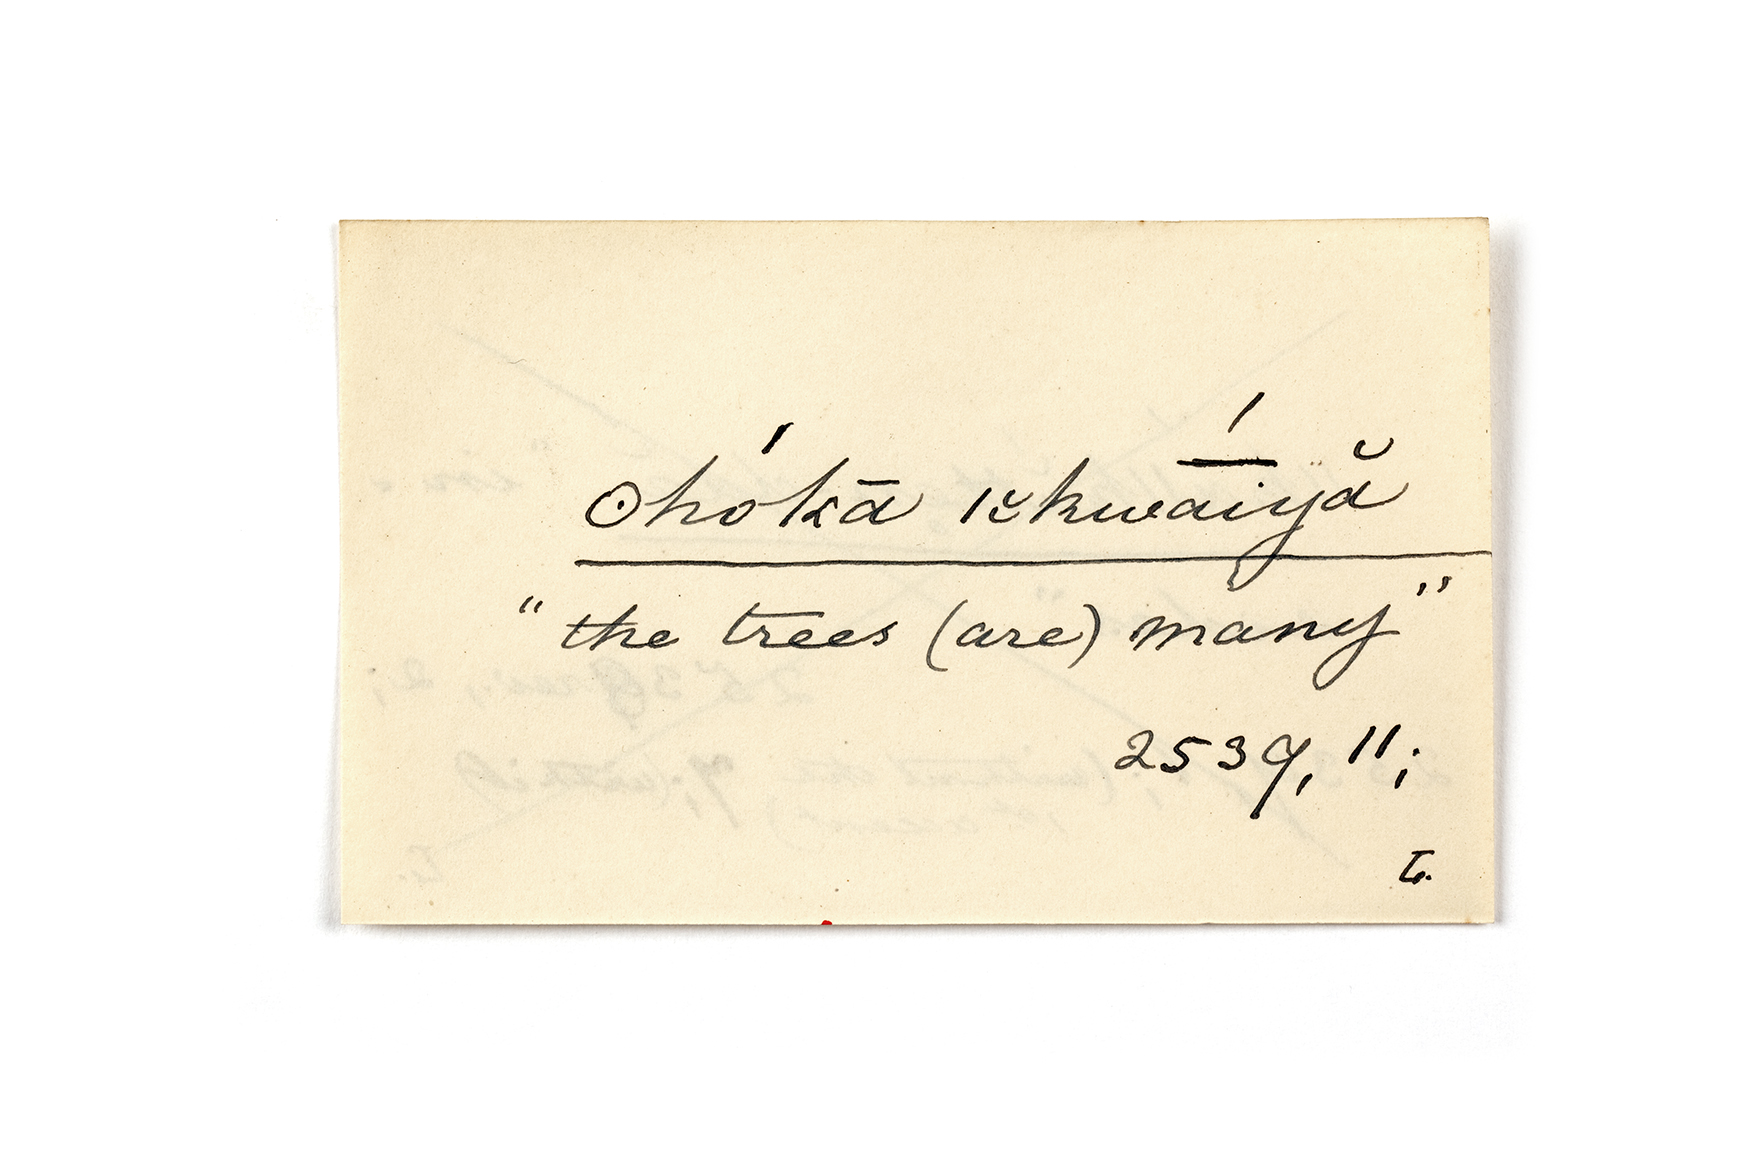 ohókā ičkwā́iyă
"the trees (are) many"
2539, 11;
T.